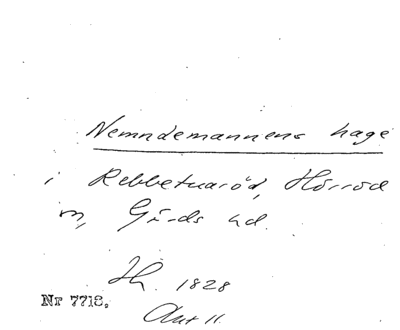 Nemndemannens hage
i Rebbetuaröd, Hörröd
sn, Gärds hd.
1828
Nr 7718.
Akt 11.